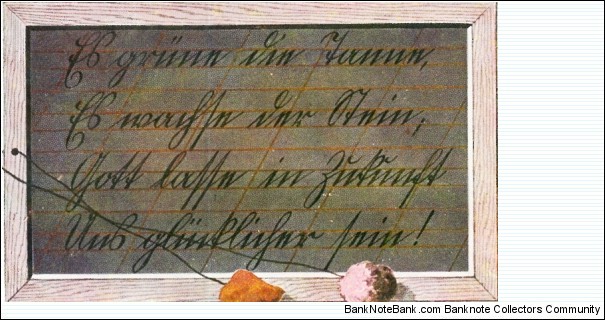 Es grüne die Tanne,
Es wachse der Stein,
Gott lasse in Zukunft
Uns glücklicher sein!
BankNoteBank.com Banknote Collectors Community